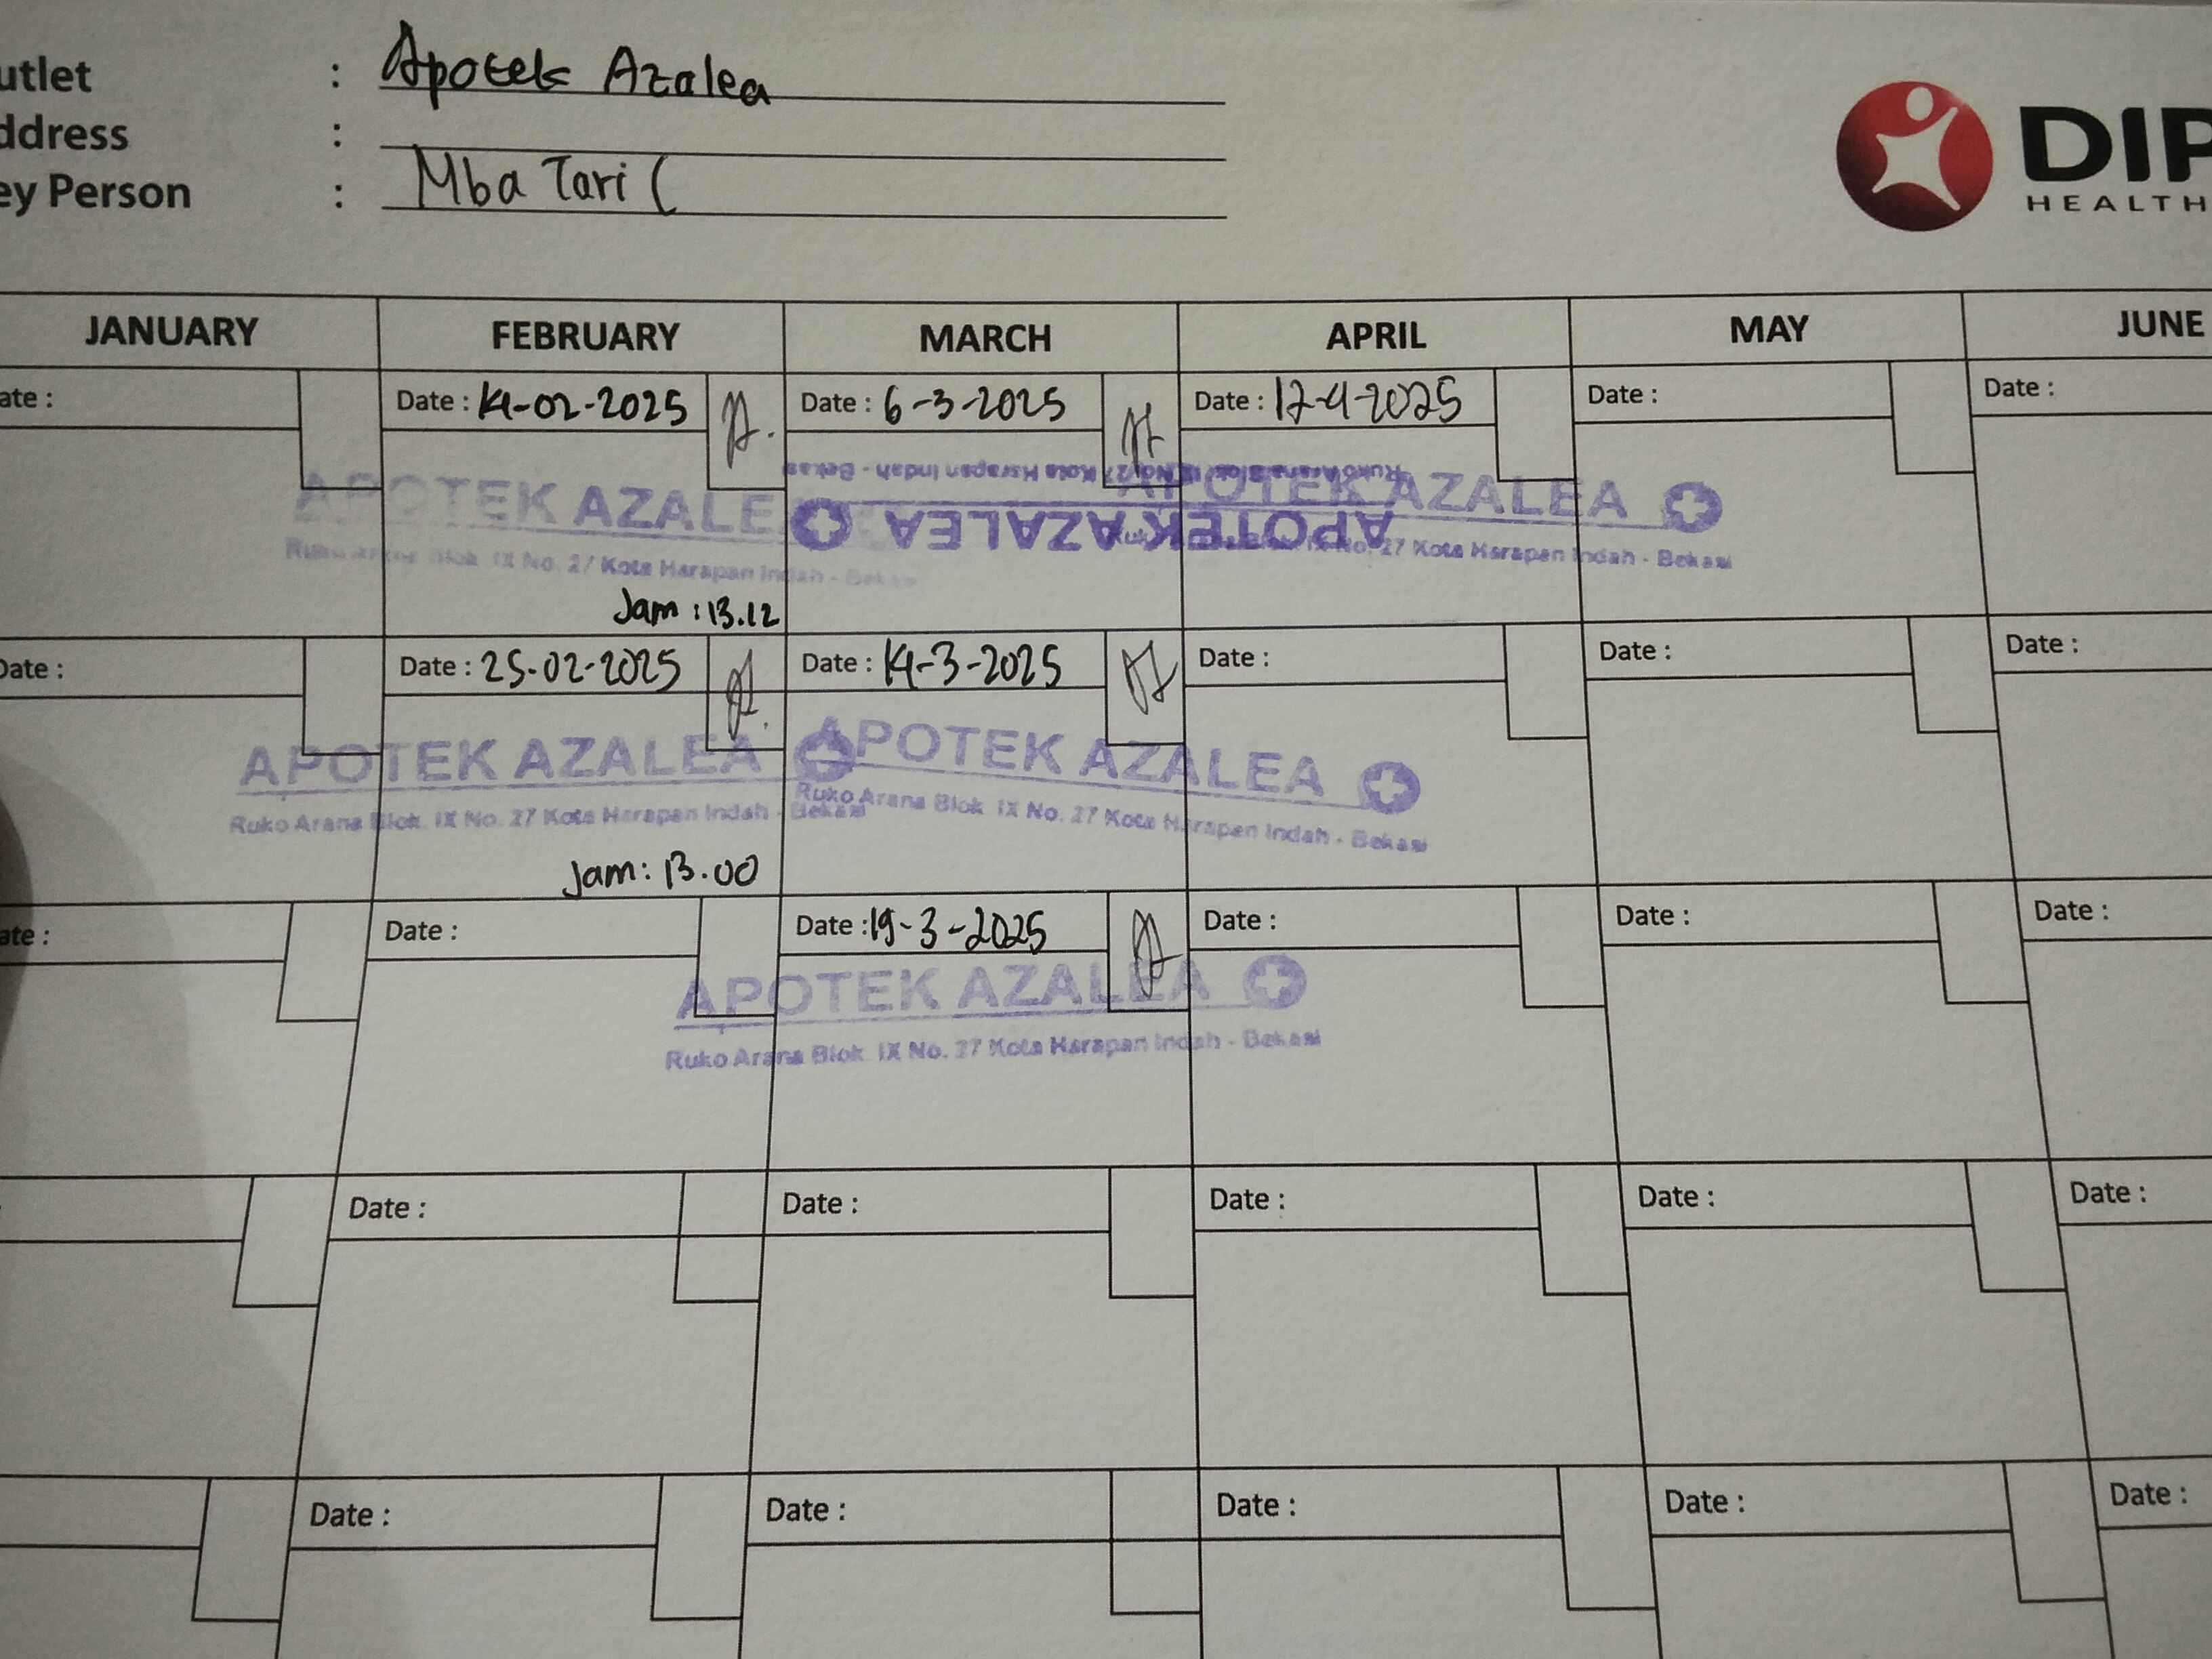 utlet : Apotek Azalea
ddress :
ey Person : Mba Tari (
DIP
HEALTH
JANUARY FEBRUARY MARCH APRIL MAY JUNE
ate : Date : 14-02-2025 Date : 6-3-2025 Date : 12-4-2025 Date : Date :
APOTEK AZALE
Ruko Arana Blok IX No. 27 Kota Harapan Indah - Bekasi
Jam : 13.12
Ruko Arana Blok IX No. 27 Kota Harapan Indah - Bekasi
APOTEK AZALEA
APOTEK AZALEA
No. 27 Kota Harapan Indah - Bekasi
Date : Date : 25-02-2025 Date : 14-3-2025 Date : Date : Date :
APOTEK AZALEA
Ruko Arana Blok IX No. 27 Kota Harapan Indah - Bekasi
Jam : 13.00
APOTEK AZALEA
Ruko Arana Blok IX No. 27 Kota Harapan Indah - Bekasi
ate : Date : Date : 19-3-2025 Date : Date : Date :
APOTEK AZALEA
Ruko Arana Blok IX No. 27 Kota Harapan Indah - Bekasi
Date : Date : Date : Date : Date :
Date : Date : Date : Date : Date :